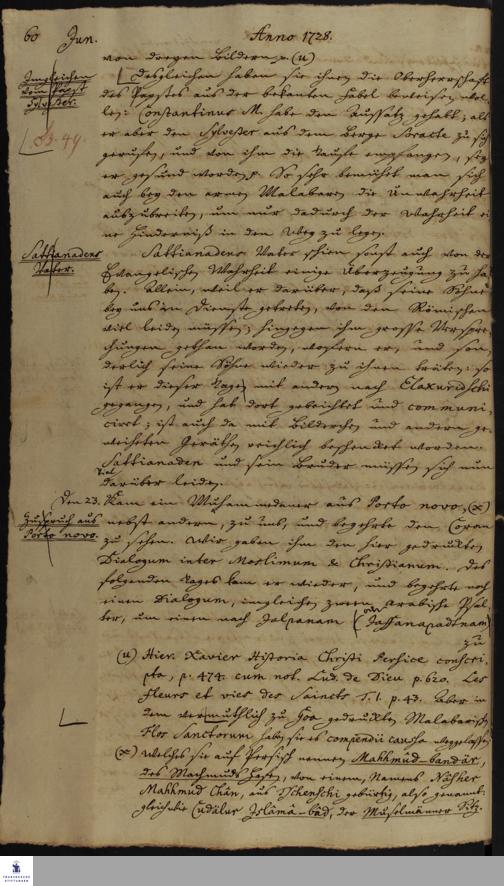 60 Jun. Anno 1728.
von dergen Bildern (u)
Imgleichen
vom Pabst
Sylvester.
Desgleichen haben sie ihnen die Oberherrschaft
des Papstes aus der bekanten Fabel beweisen wol-
len: Constantinus M. habe den Aussatz gehabt; als
er aber den Sylvester aus dem Berge Soracte zu sich
gerufen, und von ihm die Taufe empfangen, sey
er gesund worden. So sehr bemühet man sich
auch bey den armen Malabaren die Unwahrheit
auszubreiten, um nur dadurch der Wahrheit ei
ne Hinderniß in den Weg zu legen.
Sattianadens
Vater.
Sattianadens Vater schien sonst auch von der
Evangelischen Wahrheit einige Überzeugung zu ha
ben. Allein, weil er darüber, daß seine Söhne
bey uns in Dienste getreten, von den Römischen
viel leiden müssen; hingegen ihm grosse Verspre
chungen gethan worden, wofern er, und son
derlich seine Söhne wieder zu ihnen träten: so
ist er dieser Tage mit andern nach Elakuritschi
gegangen, und hat dort gebeichtet und communi
cirt; ist auch da mit Bilderchen und andern ge
weiheten Geräthen reichlich beschenket worden.
Sattianaden und sein Bruder müssen sich nun
viel
darüber leiden.
Zuspruch aus
Porto novo.
Den 23. Kam ein Muhammedaner aus Porto novo, (x)
nebst andern, zu uns, und begehrte den Coran
zu sehen. Wir gaben ihm den hier gedrukten
Dialogum inter Moslimum & Christianum. Des
folgenden Tages kam er wieder, und begehrte noch
einen Dialogum, imgleichen zween Arabische Psal
ter, um einen nach Jalpanam (oder Jaffanapatnam)
zu
(u) Hier. Xavier Historia Christi Persice conscri-
pta, p. 474. cum not. Lud. de Dieu p. 620. Les
fleurs et vies des Saincts T. I. p. 43. Aber in
dem vermuthlich zu Goa gedrukten Malabarisch
Flos Sanctorum haben sie es compendii caussa weggelassen
(x) Welches sie auf Persisch nennen Mahhmud-bandar,
des Machmuds Hafen, von einem, Namens
Mahhmud Chan, aus Tschenschi gebürtig, also genannt:
gleichwie Cudalur Islâmâ-bâd, der Muselmänner Sitz.
FRANCKESCHE
STIFTUNGEN